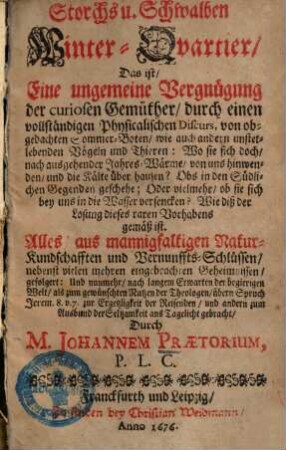 Storchs u. Schwalben
Winter-Qvartier/
Das ist/
Eine ungemeine Vergnügung
der curiosen Gemüther/ durch einen
vollständigen Physicalischen Discurs, von ob-
gedachten Sommer-Boten/ wie auch andern unstet-
lebenden Vögeln und Thieren: Wo sie sich doch/
nach ausgehender Jahres-Wärme/ von uns hinwen-
den/ und die Kälte über hausen? Obs in den Südli-
chen Gegenden geschehe; Oder vielmehr/ ob sie sich
bey uns in die Wasser versencken? Wie deß der
Losung dieses raren Vorhabens
gemäß ist.
Alles/ aus mannigfaltigen Natur-
Kundschafften und Vernunffts-Schlüssen/
nebenst vielen mehren eingebrachten Geheimnissen/
gefolgert: Und nunmehr/ nach langem Erwarten der begierigen
Welt/ als zum gewünschten Nutzen der Theologen/ übern Spruch
Jerem. 8. v. 7. zur Ergetzligkeit der Reisenden/ und andern zum
Ausbund der Seltzamkeit ans Tagelicht gebracht/
Durch
M. JOHANNEM PRÆTORIUM,
P. L. C.
Franckfurth und Leipzig/
finden bey Christian Weidmann/
Anno 1676.